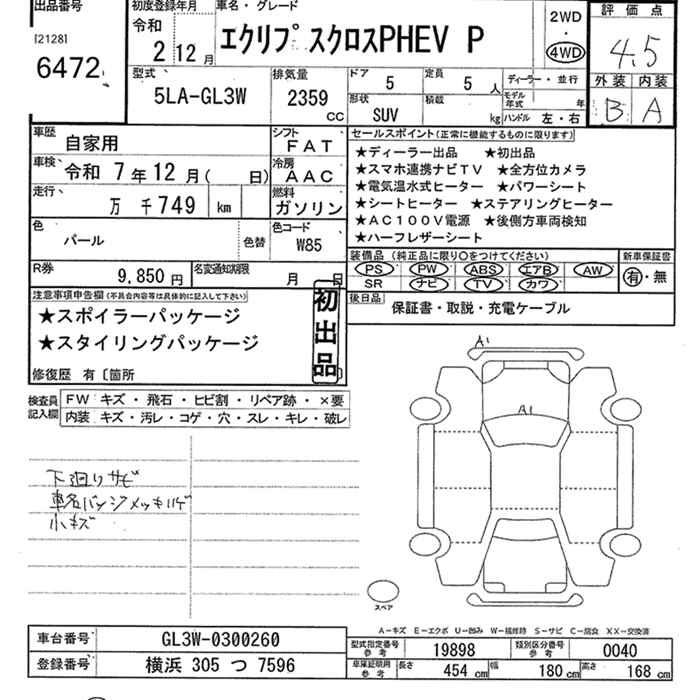 出品番号
[2128]
6472
初度登録年月
令和
2 12月
車名・グレード
エクリプスクロスPHEV P
2WD
・
4WD
評価点
4.5
外装 内装
B A
型式
5LA-GL3W
排気量
2359
CC
ドア
5
定員
5 人
形状
SUV
積載
kg
ディーラー・並行
モデル年式 年
ハンドル 左・右
車歴 自家用
シフト FAT
車検 令和 7年12月( 日)
冷房 AAC
走行 万 千749 km
燃料 ガソリン
色 パール
色替
色コード W85
R券 9,850 円
名変通知期限 月 日
セールスポイント(正常に機能するものに限ります)
★ディーラー出品 ★初出品
★スマホ連携ナビTV ★全方位カメラ
★電気温水式ヒーター ★パワーシート
★シートヒーター ★ステアリングヒーター
★AC100V電源 ★後側方車両検知
★ハーフレザーシート
装備品(純正品に限り○をつけてください)
PS PW ABS エアB AW
SR ナビ TV カワ
新車保証書
有・無
後日品
保証書・取説・充電ケーブル
注意事項申告欄(不具合内容等は具体的に記入して下さい)
★スポイラーパッケージ
★スタイリングパッケージ
初出品
修復歴 有〔箇所
検査員記入欄
FW キズ・飛石・ヒビ割・リペア跡・×要
内装 キズ・汚レ・コゲ・穴・スレ・キレ・破レ
下廻りサビ
車名バッジメッキハゲ
小キズ
A1
A1
スペア
A-キズ E-エクボ U-凹み W-補修跡 S-サビ C-腐食 XX-交換済
車台番号 GL3W-0300260
登録番号 横浜 305 つ 7596
型式指定番号 参考 19898
類別区分番号 参考 0040
車庫証明用 参考 長さ 454 cm 幅 180 cm 高さ 168 cm